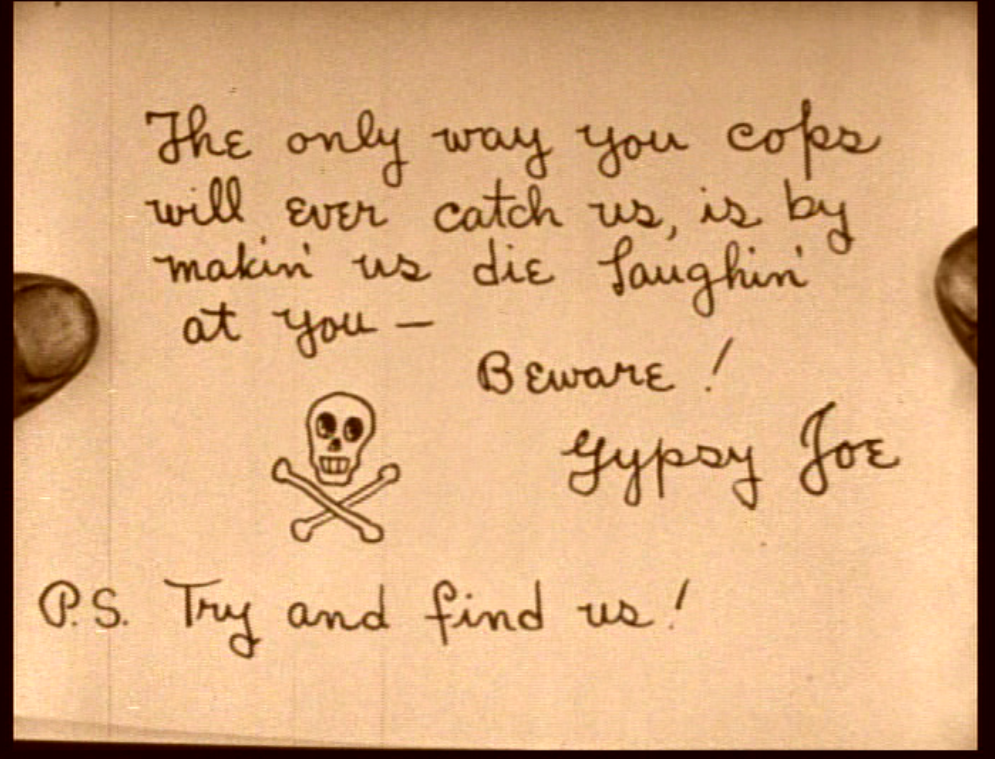 The only way you cops
will ever catch us, is by
makin' us die laughin'
at you —
Beware!
Gypsy Joe
P.S. Try and find us!